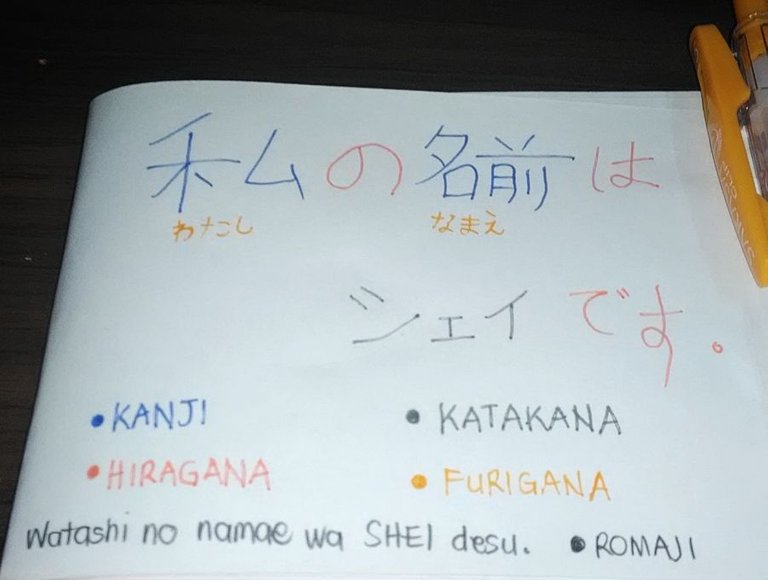 私の名前は
わたし なまえ
シェイです。
• KANJI • KATAKANA
• HIRAGANA • FURIGANA
Watashi no namae wa SHEI desu. • ROMAJI